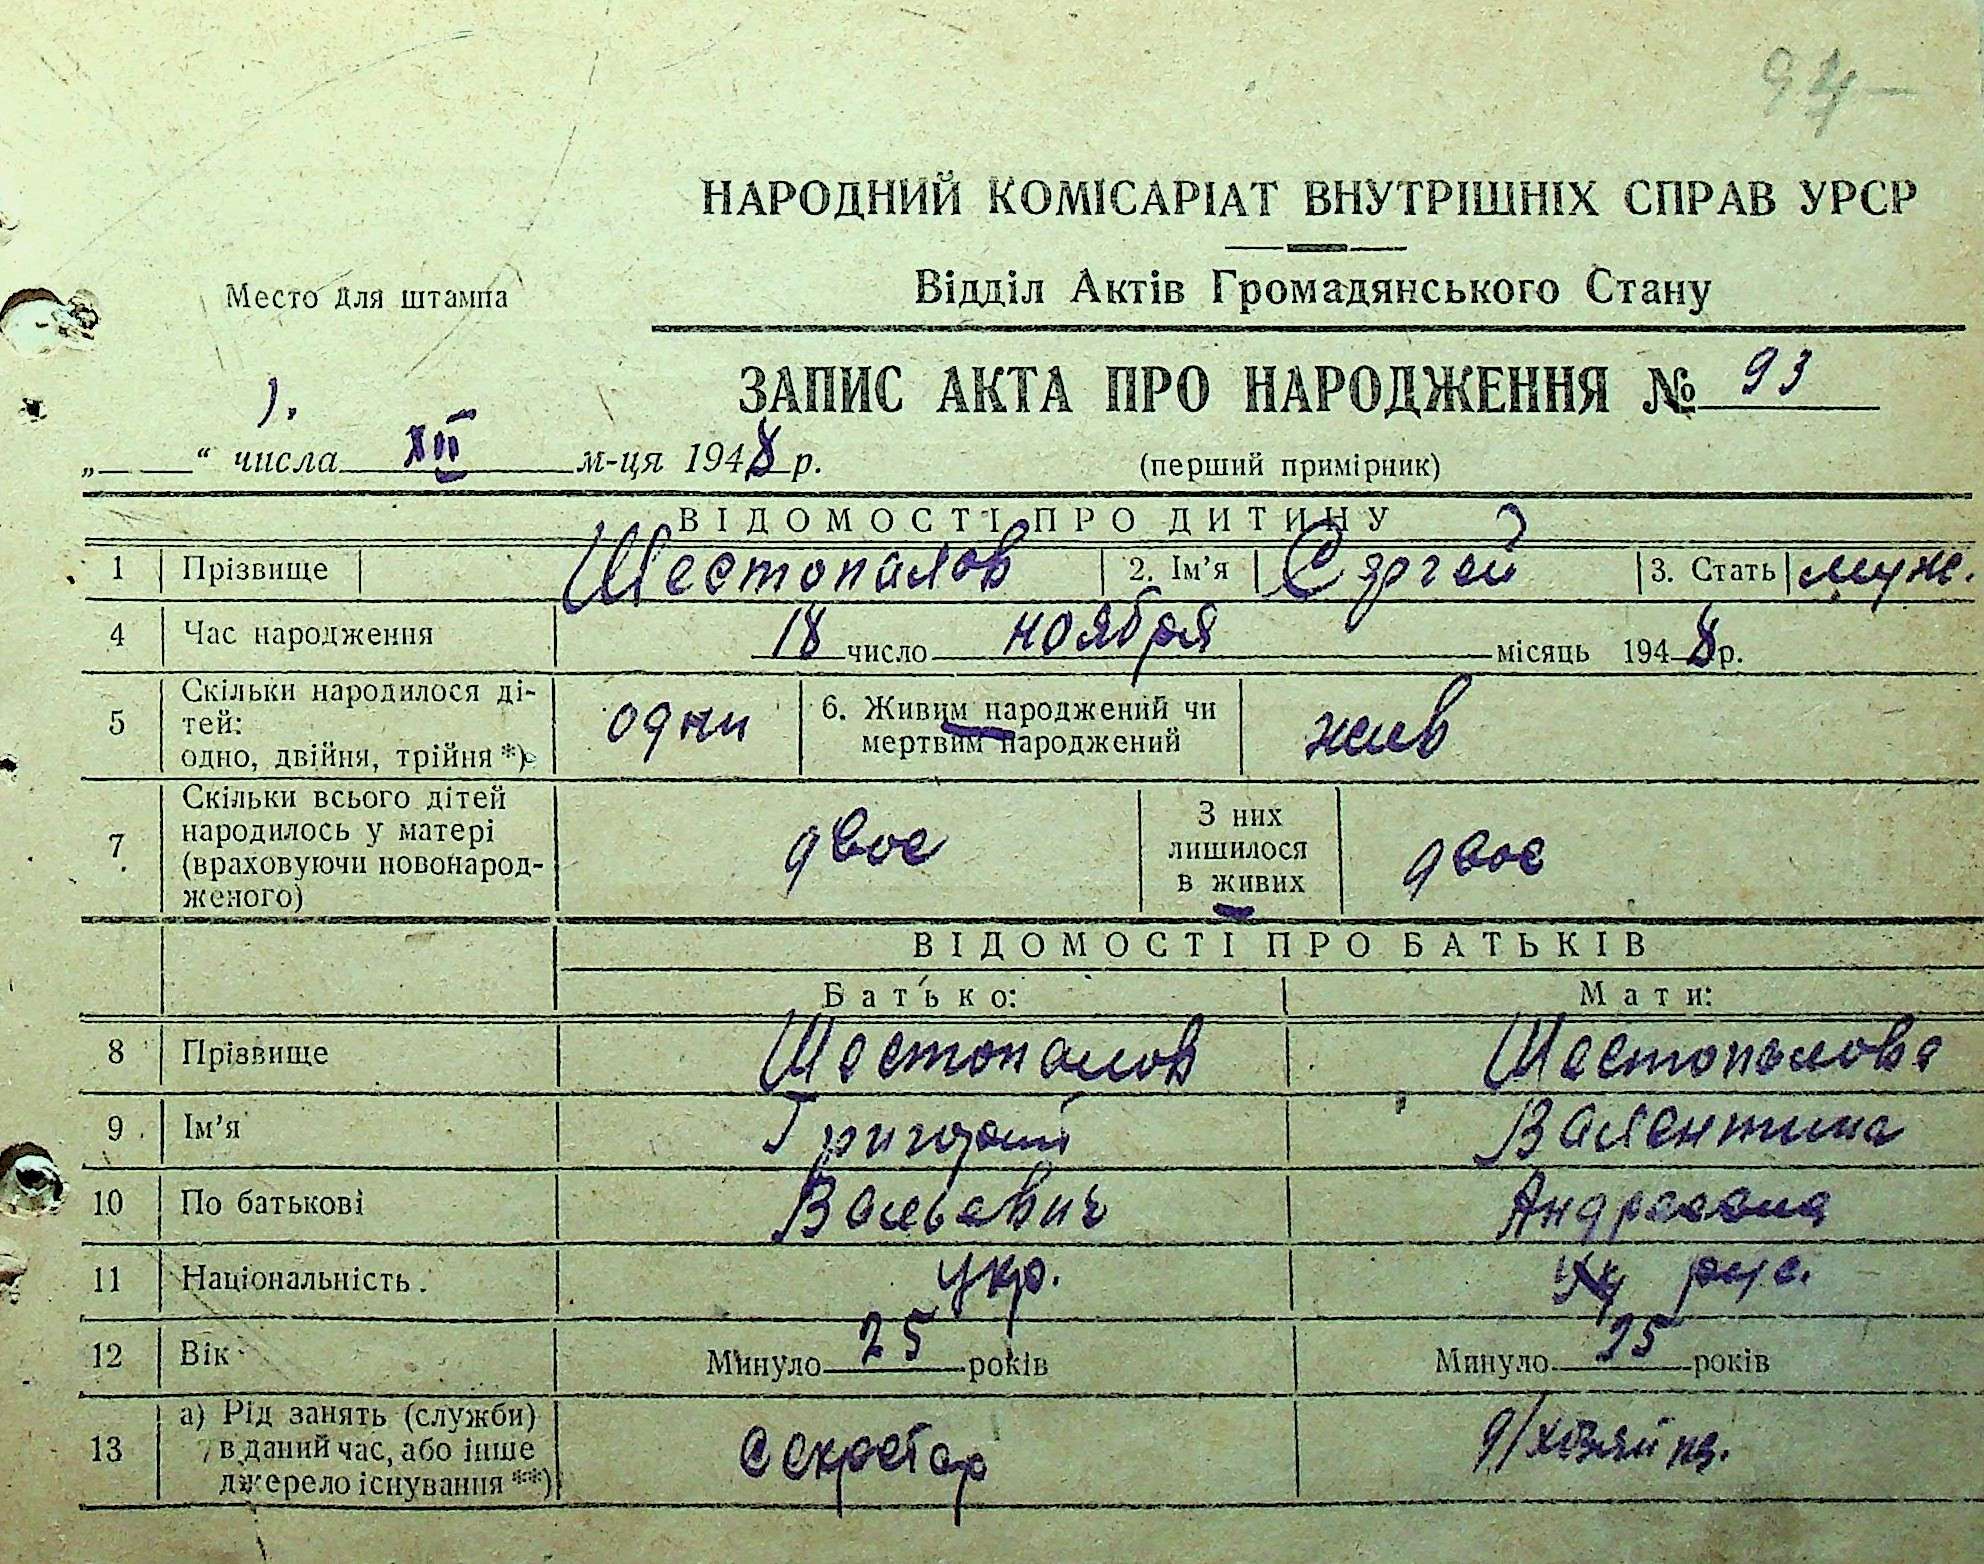 94-
НАРОДНИЙ КОМІСАРІАТ ВНУТРІШНІХ СПРАВ УРСР
Відділ Актів Громадянського Стану
Место для штампа
ЗАПИС АКТА ПРО НАРОДЖЕННЯ № 93
1.
„ “ числа XII м-ця 1948 р.
(перший примірник)
ВІДОМОСТІ ПРО ДИТИНУ
1 Прізвище Шестопалов 2. Ім’я Сергей 3. Стать муж.
4 Час народження 18 число ноября місяць 1948 р.
5 Скільки народилося ді-
тей:
одно, двійня, трійня *)
одни
6. Живим народжений чи
мертвим народжений
жив
7 Скільки всього дітей
народилось у матері
(враховуючи новонарод-
женого)
двое
З них
лишилося
в живих
двое
ВІДОМОСТІ ПРО БАТЬКІВ
Батько: Мати:
8 Прізвище Шестопалов Шестопалова
9 Ім’я Григорий Валентина
10 По батькові Андреевна
11 Національність. укр. рус.
12 Вік Минуло 25 років Минуло 25 років
13 а) Рід занять (служби)
в даний час, або інше
джерело існування **)
секретар
д/хозяйка.